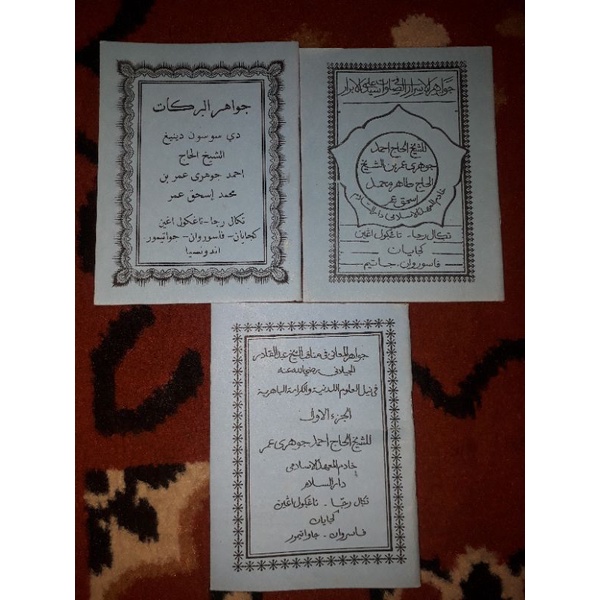 جواهر البركات
دي سوسون دينيڠ
الشيخ الحاج
احمد جوهري عمر بن
محمد إسحق عمر
تكال رجا - تاڠكول اڠين
كجايان - فاسوروان - جواتيمور
اندونسيا
جواهر الاسرار الصلوات سيد الابرار
للشيخ الحاج احمد
جوهري عمر بن الشيخ
الحاج طاهر محمد
إسحق عمر
خادم المعهد الاسلامي دار السلام
تكال رجا - تاڠكول اڠين
كجايان
فاسوروان - جاتيم
جواهر المعاني في مناقب الشيخ عبد القادر
الجيلاني رضي الله عنه
في نيل العلوم اللدنية والكرامة الباهرية
الجزء الاول
للشيخ الحاج احمد جوهري عمر
خادم المعهد الاسلامي
دار السلام
تكال رجا - تاڠكول اڠين
كجايان
فاسروان - جاواتيمور